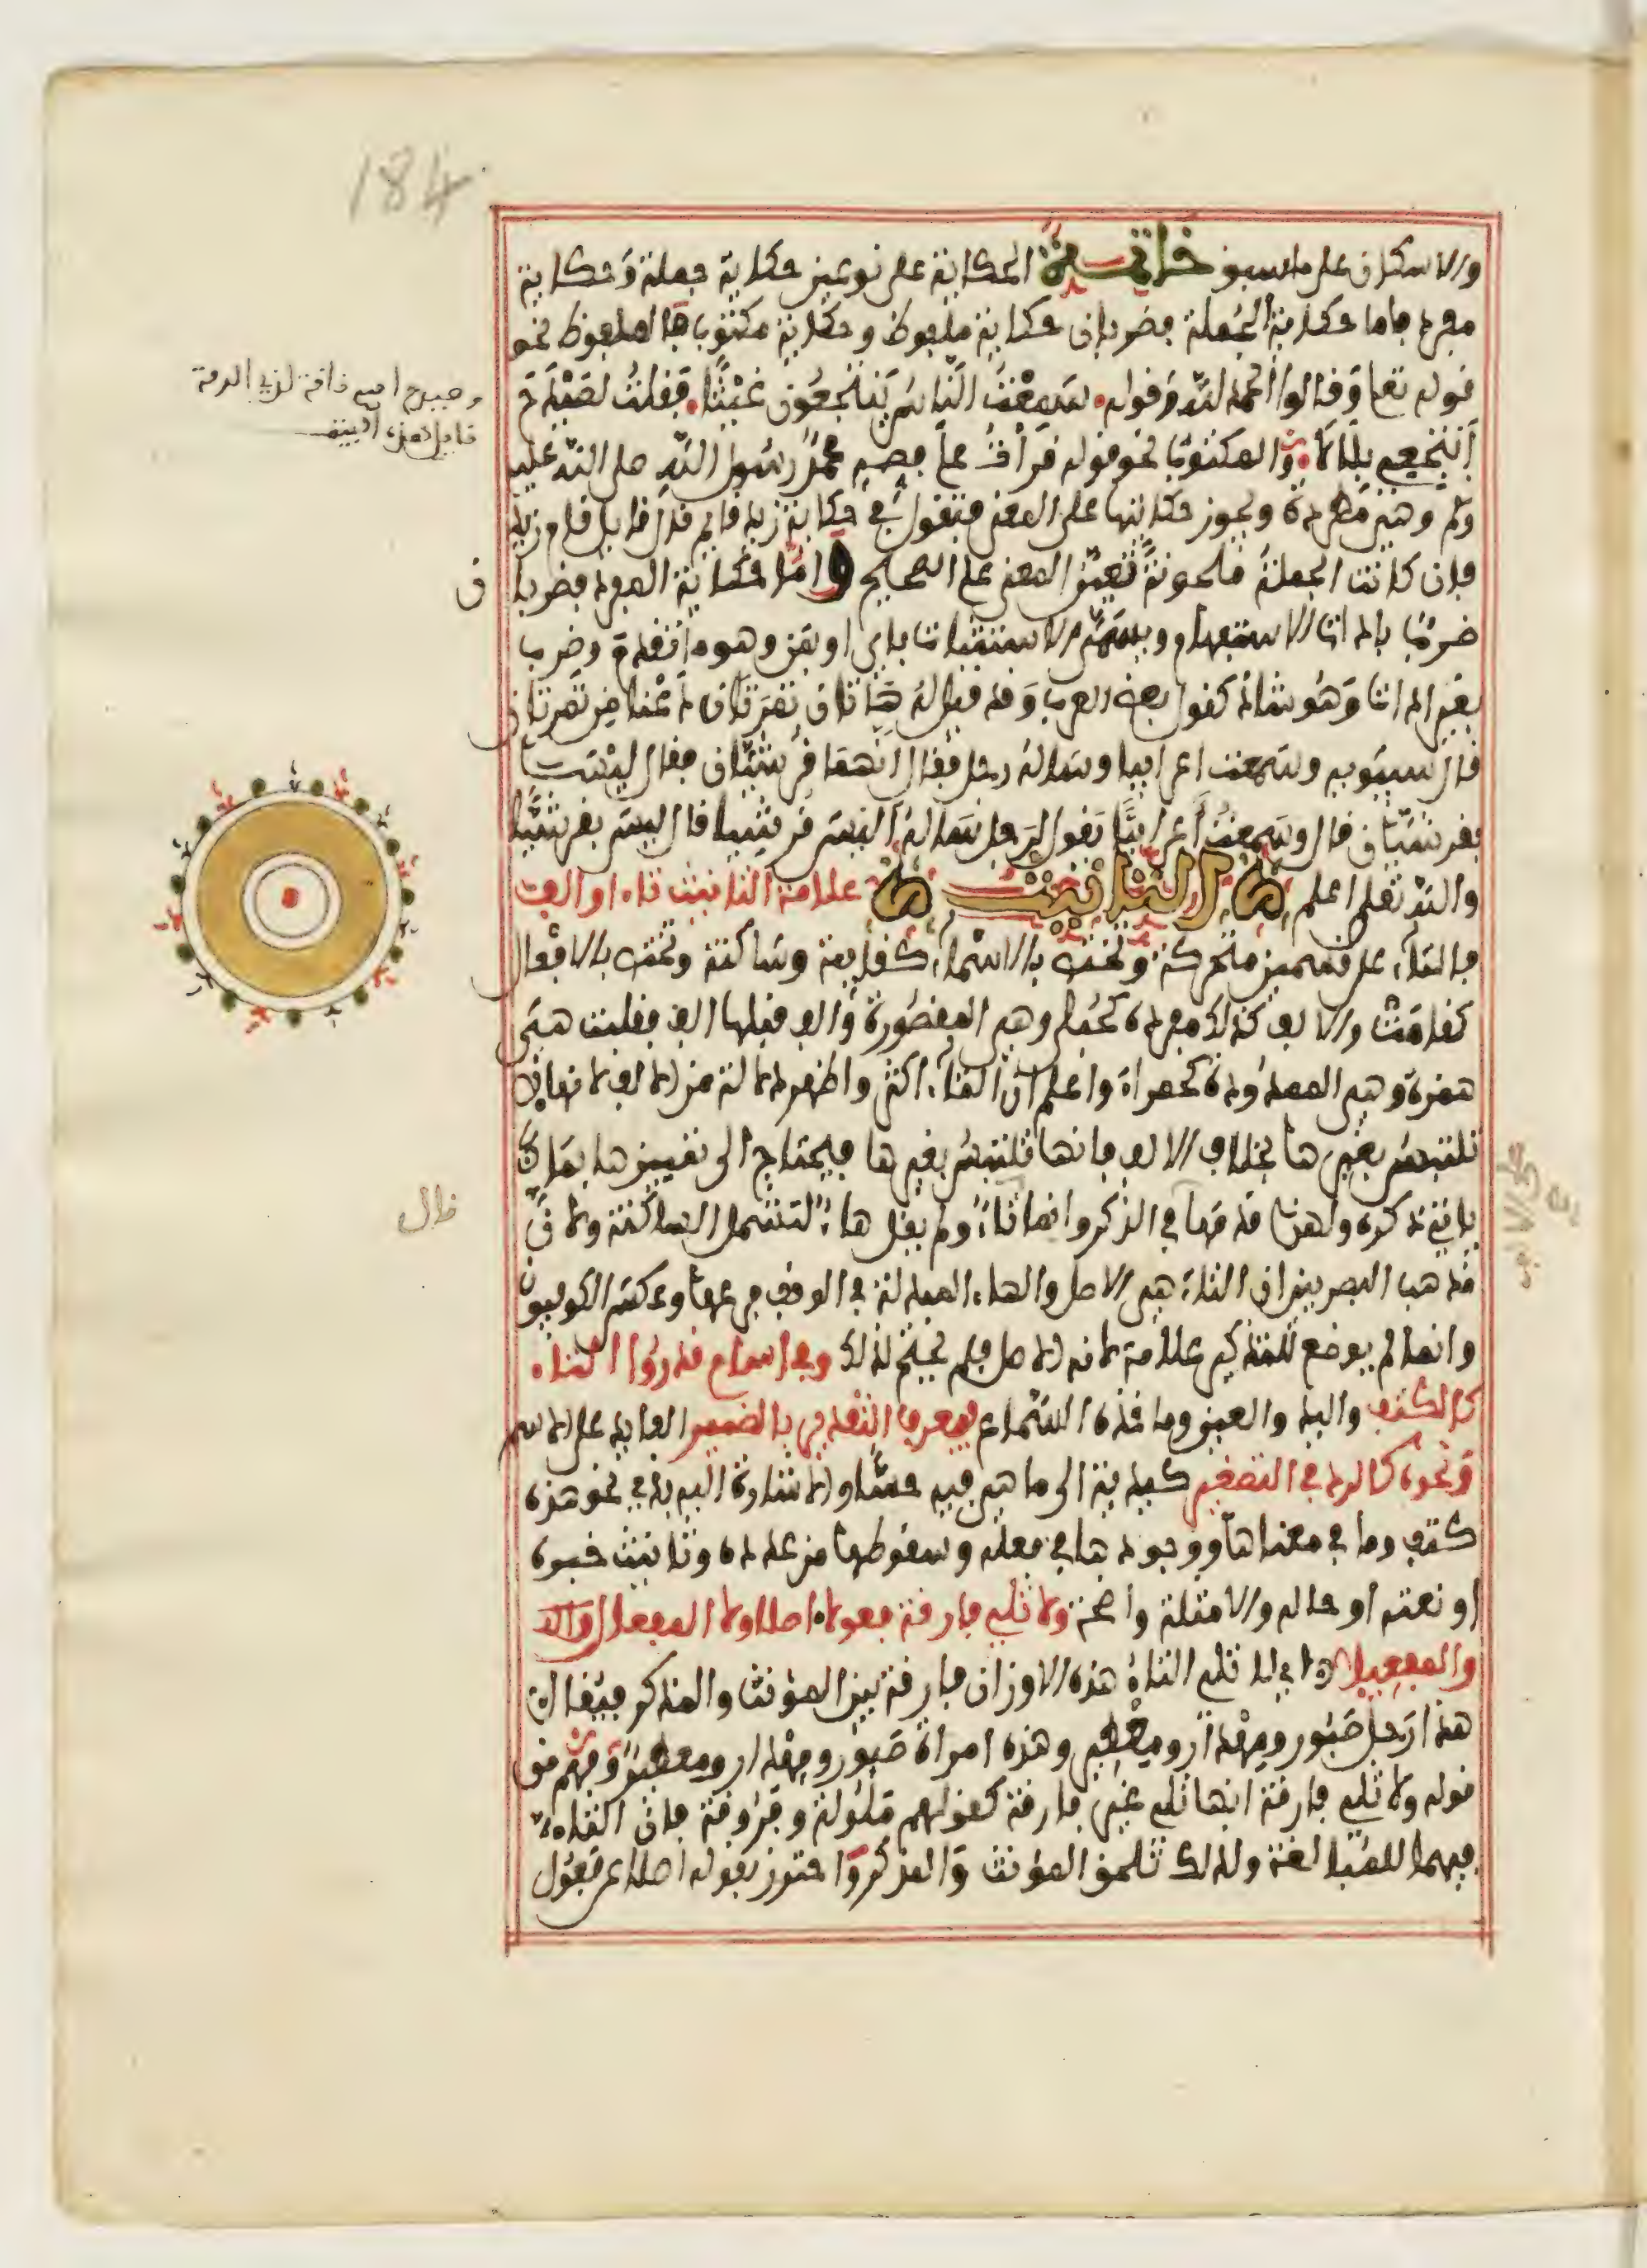 184
والاسكان على ما سبق خاتمة الحكاية على نوعين حكاية جملة وحكاية
مفرد فاما حكاية الجملة فضربان حكاية ملفوظ وحكاية مكتوب فالملفوظ نحو
قوله تعلى وقالوا الحمد لله وقوله سمعت الناس ينتجعون غيثا فقلت لصيدح
انتجعي بلالا والمكتوب نحو قوله قرأت على فصه محمد رسول الله صلى الله عليه
وسلم وهي مطردة ويجوز حكايتها على المعنى فتقول في حكاية زيد قايم قال قايل قام زيد
فان كانت الجملة ملحونة تعين المعنى على الصحيح واما حكاية المفرد فضربان
ضرب باداة الاستفهام ويسمى الاستثبات باي او بمن وهو ما تقدم وضرب
بغير اداة وهو شاذ كقول بعض العرب وقد قيل له هاتان تمرتان دعنا من تمرتان
قال سيبويه وسمعت اعرابيا وساله رجل فقال انهما قرشيان فقال ليستا
بقرشيان قال وسمعت اعرابيا يقول لرجل ساله اليس قرشيا قال ليس بقرشيا
والله تعلى اعلم التانيث علامة التانيث تاء او الف
فالتاء على قسمين متحركة وتختص بالاسماء كقايمة وساكنة وتختص بالافعال
كقامت والالف كذلك مفردة كحبلى وهي المقصورة والف قبلها الف فقلبت هي
همزة وهي الممدودة كحمراء واعلم ان التاء اكثر واظهر دلالة من الالف لانها لا
تلتبس بغيرها بخلاف الالف فانها تلتبس بغيرها فيحتاج الى تمييزها بما
ياتي ذكره ولهذا قدمها في الذكر وانما قال تاء ولم يقل هاء لتشمل الساكنة ولان
مذهب البصريين ان التاء هي الاصل والهاء المبدلة في الوقف فرعها وعكس الكوفيون
وانما لم يوضع للتذكير علامة لانه الاصل فلم يحتج لذلك وفي اسام قدروا التاء
كالكتف واليد والعين وماخذه السماع ويعرف التقدير بالضمير العايد على الاسم
ونحوه كالرد في التصغير كيدية الى ما هي فيه حسا والاشارة اليه بذي نحو هذه
كتف وما في معناها ووجودها في فعله وسقوطها من عدده وتانيث خبره
او نعته او حاله والامثلة واضحة ولا تلي فارقة فعولا اصلا ولا المفعال و
والمفعيلا اي لا تلي التاء هذه الاوزان فارقة بين المؤنث والمذكر فيقال
هذا رجل صبور ومهذار ومعطير وهذه امراة صبور ومهذار ومعطير وفهم من
قوله ولا تلي فارقة انها تلي غير فارقة كقولهم ملولة وفروقة فان التاء
فيهما للمبالغة ولذلك تلحق المؤنث والمذكر واحترز بقوله اصلا عن فعول
وصيدح اسم ناقة لذي الرمة
قايل هذا البيت
ن
قال